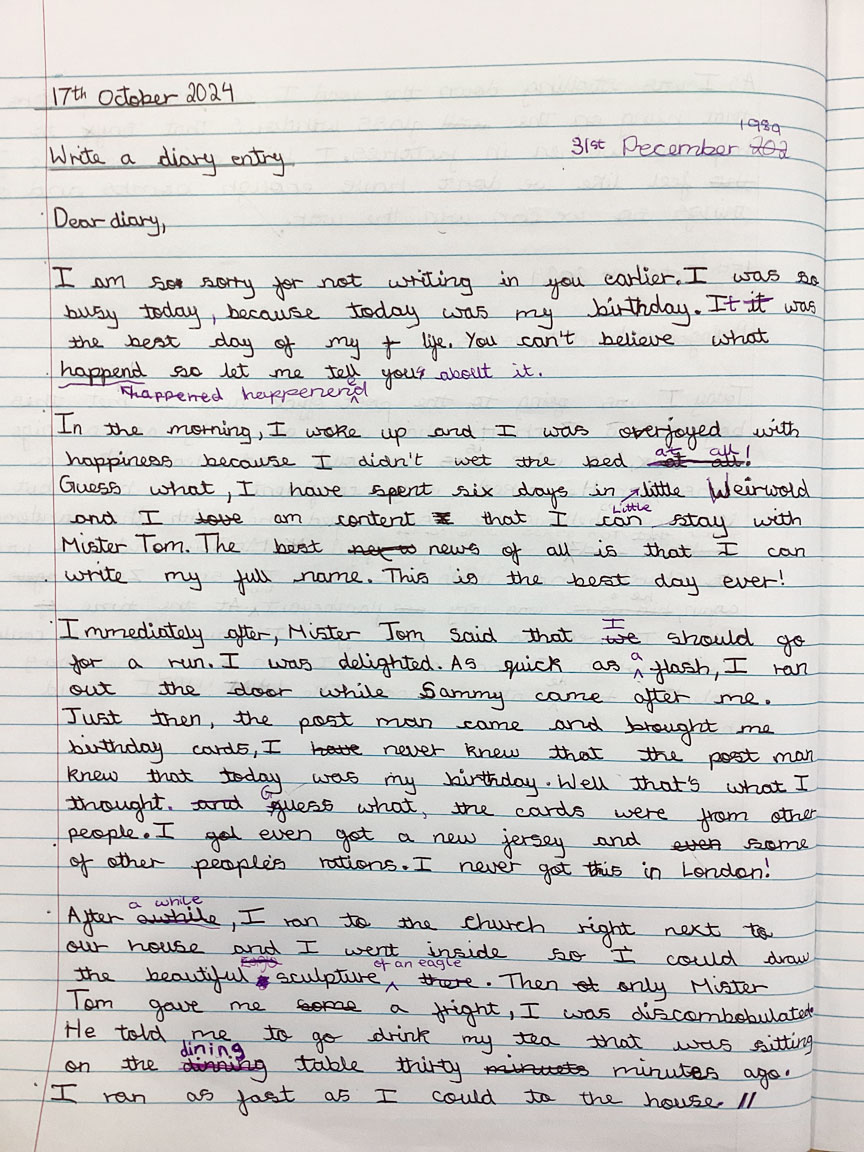 17th October 2024
1989
Write a diary entry 31st December 202
Dear diary,
I am so sorry for not writing in you earlier. I was so
busy today, because today was my birthday. It it was
the best day of my f life. You can't believe what
happend so let me tell you about it.
happened happenend
In the morning, I woke up and I was overjoyed with
happiness because I didn't wet the bed at all at all!
Guess what, I have spent six days in little Weirwold
Little
and I love am content that I can stay with
Mister Tom. The best news of all is that I can
write my full name. This is the best day ever!
I
Immediately after, Mister Tom said that we should go
for a run. I was delighted. As quick as a flash, I ran
out the door while Sammy came after me.
Just then, the post man came and brought me
birthday cards, I have never knew that the post man
knew that today was my birthday. Well that's what I
thought. and Guess what, the cards were from other
people. I got even got a new jersey and even some
of other people's rations. I never got this in London!
a while
After awhile, I ran to the church right next to
our house and I went inside so I could draw
eagle of an eagle
the beautiful sculpture there. Then only Mister
Tom gave me some a fright, I was discombobulated.
He told me to go drink my tea that was sitting
dining
on the dinning table thirty minuets minutes ago.
I ran as fast as I could to the house. //